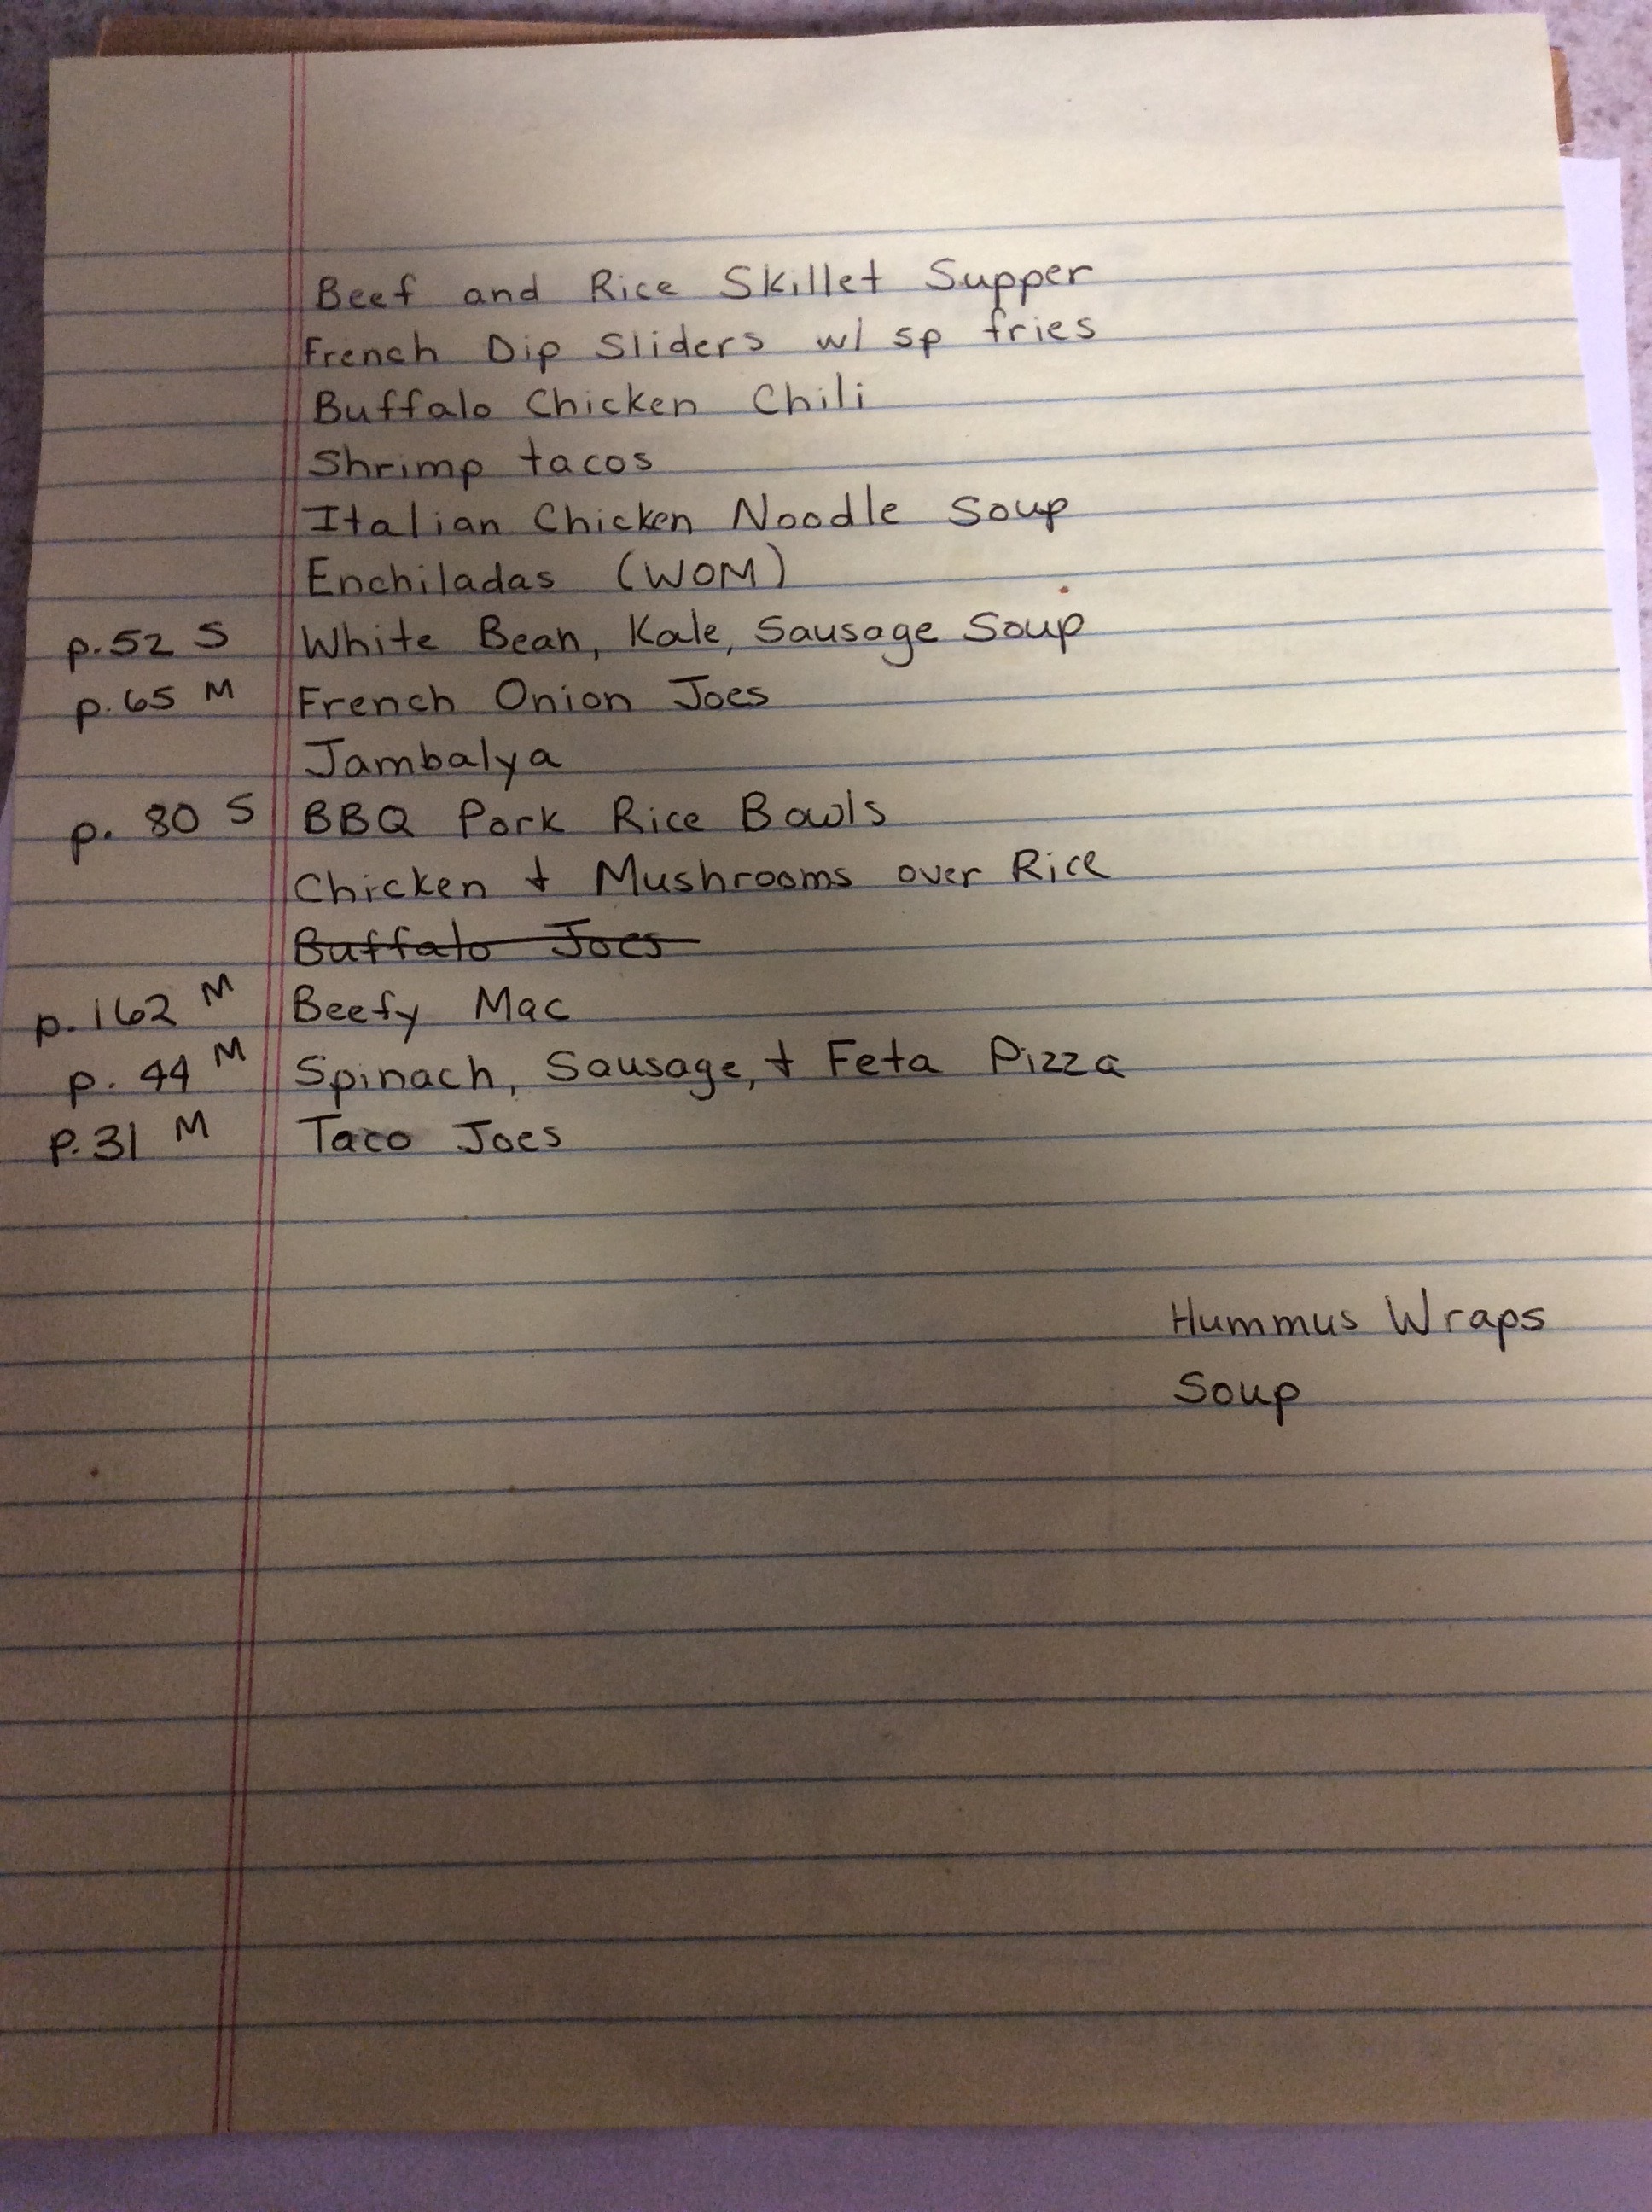 Beef and Rice Skillet Supper
French Dip Sliders w/ sp fries
Buffalo Chicken Chili
Shrimp tacos
Italian Chicken Noodle Soup
Enchiladas (WOM)
p.52 S White Bean, Kale, Sausage Soup
p.65 M French Onion Joes
Jambalya
p. 80 S BBQ Pork Rice Bowls
Chicken + Mushrooms over Rice
Buffalo Joes
p.162 M Beefy Mac
p. 44 M Spinach, Sausage, + Feta Pizza
P.31 M Taco Joes
Hummus Wraps
Soup